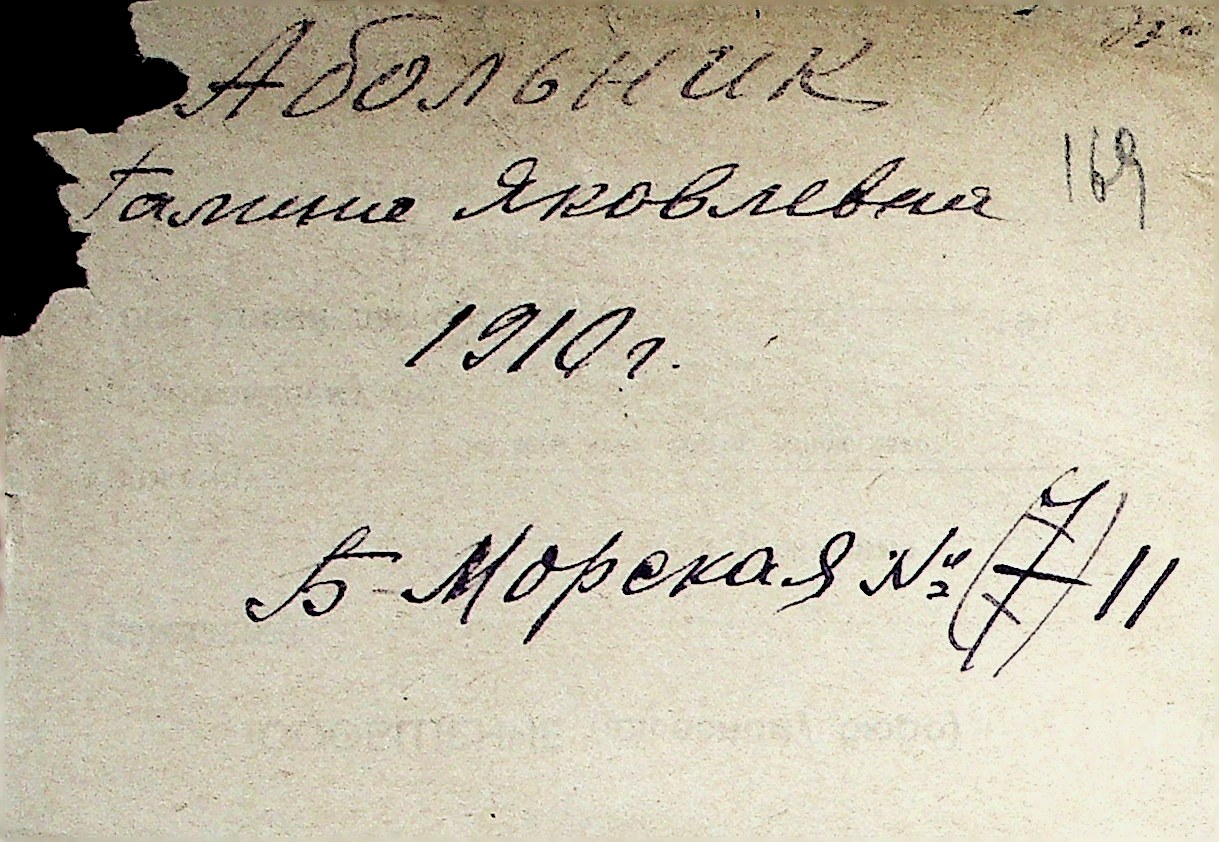 Абольник
Галина Яковлевна 169
1910 г.
Б-Морская № 7 11